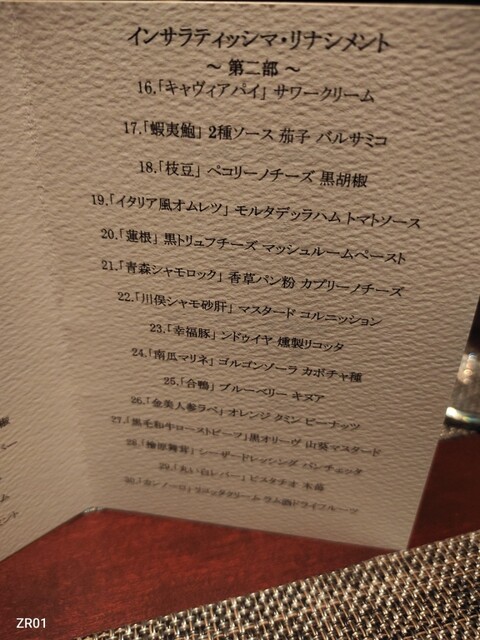 インサラティッシマ・リナシメント
～ 第二部 ～
16.「キャヴィアパイ」 サワークリーム
17.「蝦夷鮑」 2種ソース 茄子 バルサミコ
18.「枝豆」 ペコリーノチーズ 黒胡椒
19.「イタリア風オムレツ」 モルタデッラハム トマトソース
20.「蓮根」 黒トリュフチーズ マッシュルームペースト
21.「青森シャモロック」 香草パン粉 カプリーノチーズ
22.「川俣シャモ砂肝」 マスタード コルニッション
23.「幸福豚」 ンドゥイヤ 燻製リコッタ
24.「南瓜マリネ」 ゴルゴンゾーラ カボチャ種
25.「合鴨」 ブルーベリー キヌア
26.「金美人参ラペ」 オレンジ クミン ピーナッツ
27.「黒毛和牛ローストビーフ」 黒オリーヴ 山葵マスタード
28.「檜原舞茸」 シーザードレッシング パンチェッタ
29.「丸い白レバー」 ピスタチオ 木苺
30.「カンノーロ」 リコッタクリーム ラム酒ドライフルーツ
ZR01